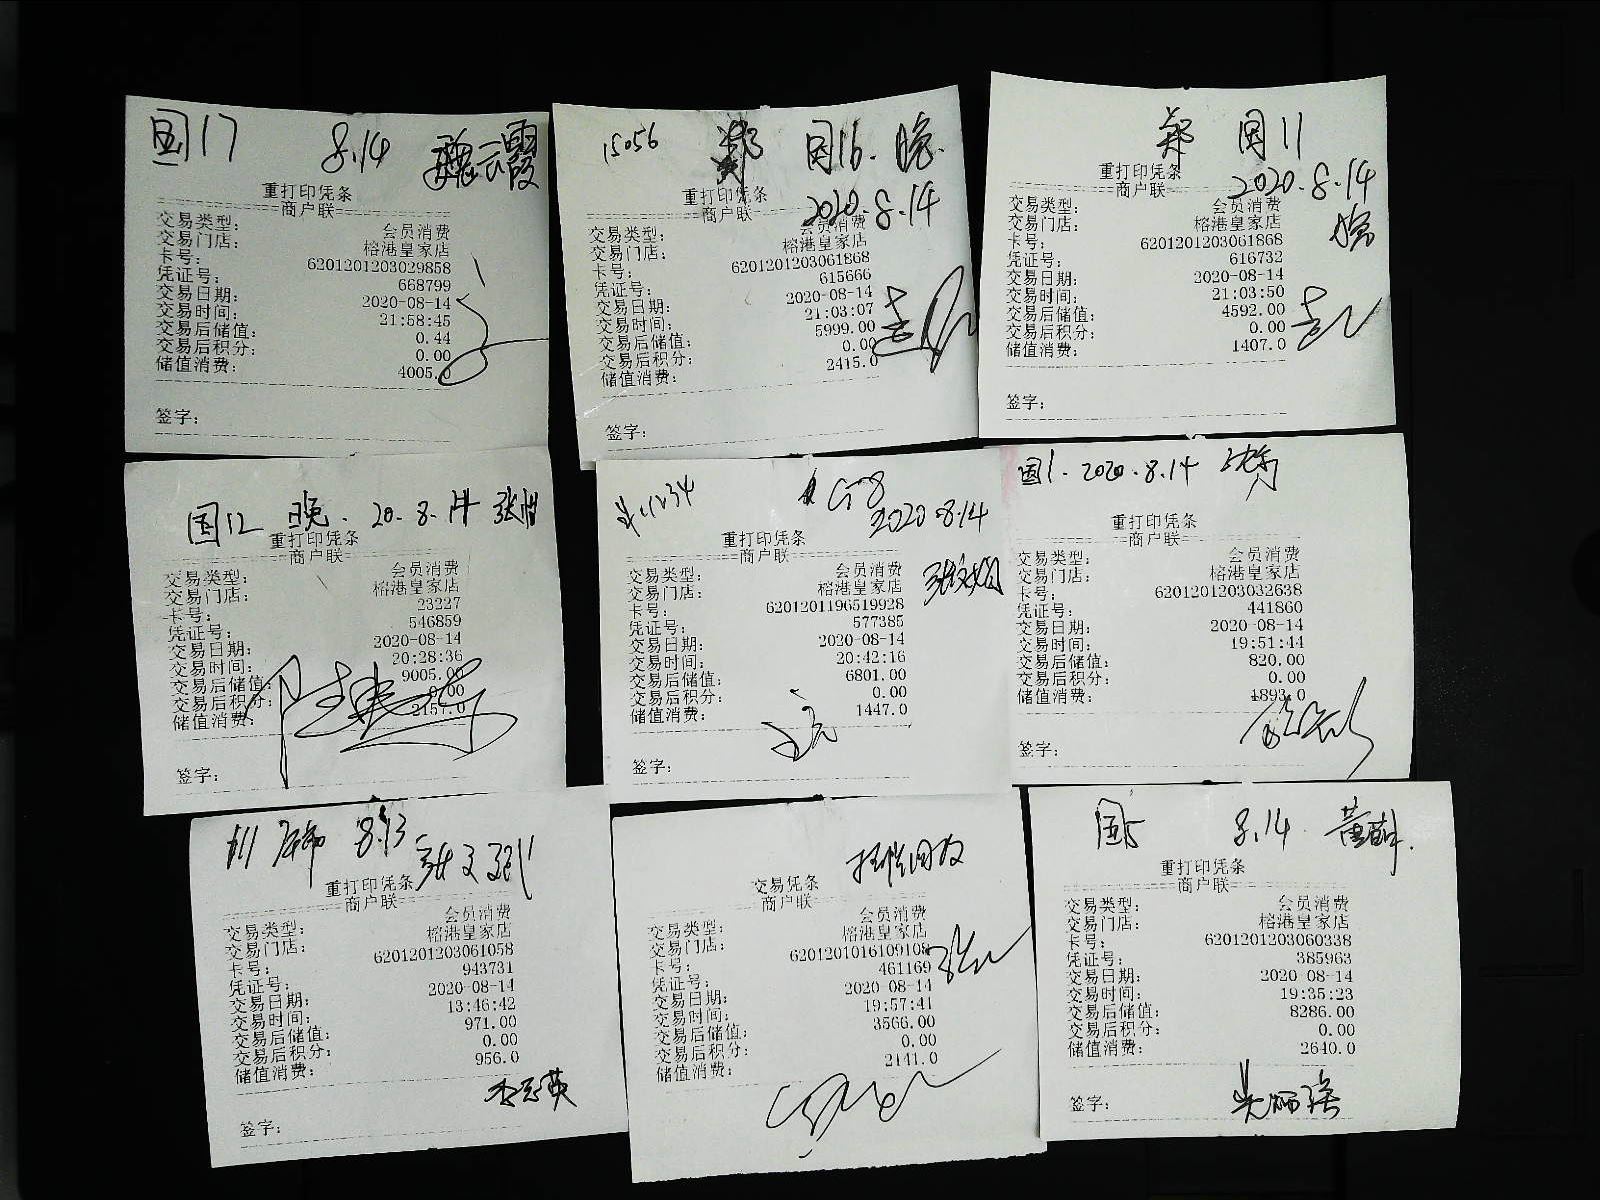 国17 8.14 魏云霞
重打印凭条
商户联
交易类型: 会员消费
交易门店: 榕港皇家店
卡号: 6201201203029858
凭证号: 668799
交易日期: 2020-08-14
交易时间: 21:58:45
交易后储值: 0.44
交易后积分: 0.00
储值消费: 4005.0
签字:
15056 郑 国16. 晚.
2020.8.14
重打印凭条
商户联
交易类型: 会员消费
交易门店: 榕港皇家店
卡号: 6201201203061868
凭证号: 615666
交易日期: 2020-08-14
交易时间: 21:03:07
交易后储值: 5999.00
交易后积分: 0.00
储值消费: 2415.0
签字:
郑 国11
2020.8.14
晚
重打印凭条
商户联
交易类型: 会员消费
交易门店: 榕港皇家店
卡号: 6201201203061868
凭证号: 616732
交易日期: 2020-08-14
交易时间: 21:03:50
交易后储值: 4592.00
交易后积分: 0.00
储值消费: 1407.0
签字:
国12 晚. 20.8.14
重打印凭条
商户联
交易类型: 会员消费
交易门店: 榕港皇家店
卡号: 23227
凭证号: 546859
交易日期: 2020-08-14
交易时间: 20:28:36
交易后储值: 9005.00
交易后积分: 0.00
储值消费: 2157.0
签字:
G8
2020.8.14
重打印凭条
商户联
交易类型: 会员消费
交易门店: 榕港皇家店
张文娟
卡号: 6201201196519928
凭证号: 577385
交易日期: 2020-08-14
交易时间: 20:42:16
交易后储值: 6801.00
交易后积分: 0.00
储值消费: 1447.0
签字:
国1. 2020.8.14
重打印凭条
商户联
交易类型: 会员消费
交易门店: 榕港皇家店
卡号: 6201201203032638
凭证号: 441860
交易日期: 2020-08-14
交易时间: 19:51:44
交易后储值: 820.00
交易后积分: 0.00
储值消费: 1893.0
签字:
8.13
重打印凭条
商户联
交易类型: 会员消费
交易门店: 榕港皇家店
卡号: 6201201203061058
凭证号: 943731
交易日期: 2020-08-14
交易时间: 13:46:42
交易后储值: 971.00
交易后积分: 0.00
储值消费: 956.0
签字:
交易凭条
商户联
交易类型: 会员消费
交易门店: 榕港皇家店
卡号: 6201201016109108
凭证号: 461169
交易日期: 2020-08-14
交易时间: 19:57:41
交易后储值: 3566.00
交易后积分: 0.00
储值消费: 2141.0
国5 8.14 黄萌.
重打印凭条
商户联
交易类型: 会员消费
交易门店: 榕港皇家店
卡号: 6201201203060338
凭证号: 385963
交易日期: 2020-08-14
交易时间: 19:35:23
交易后储值: 8286.00
交易后积分: 0.00
储值消费: 2640.0
签字: 吴丽瑶